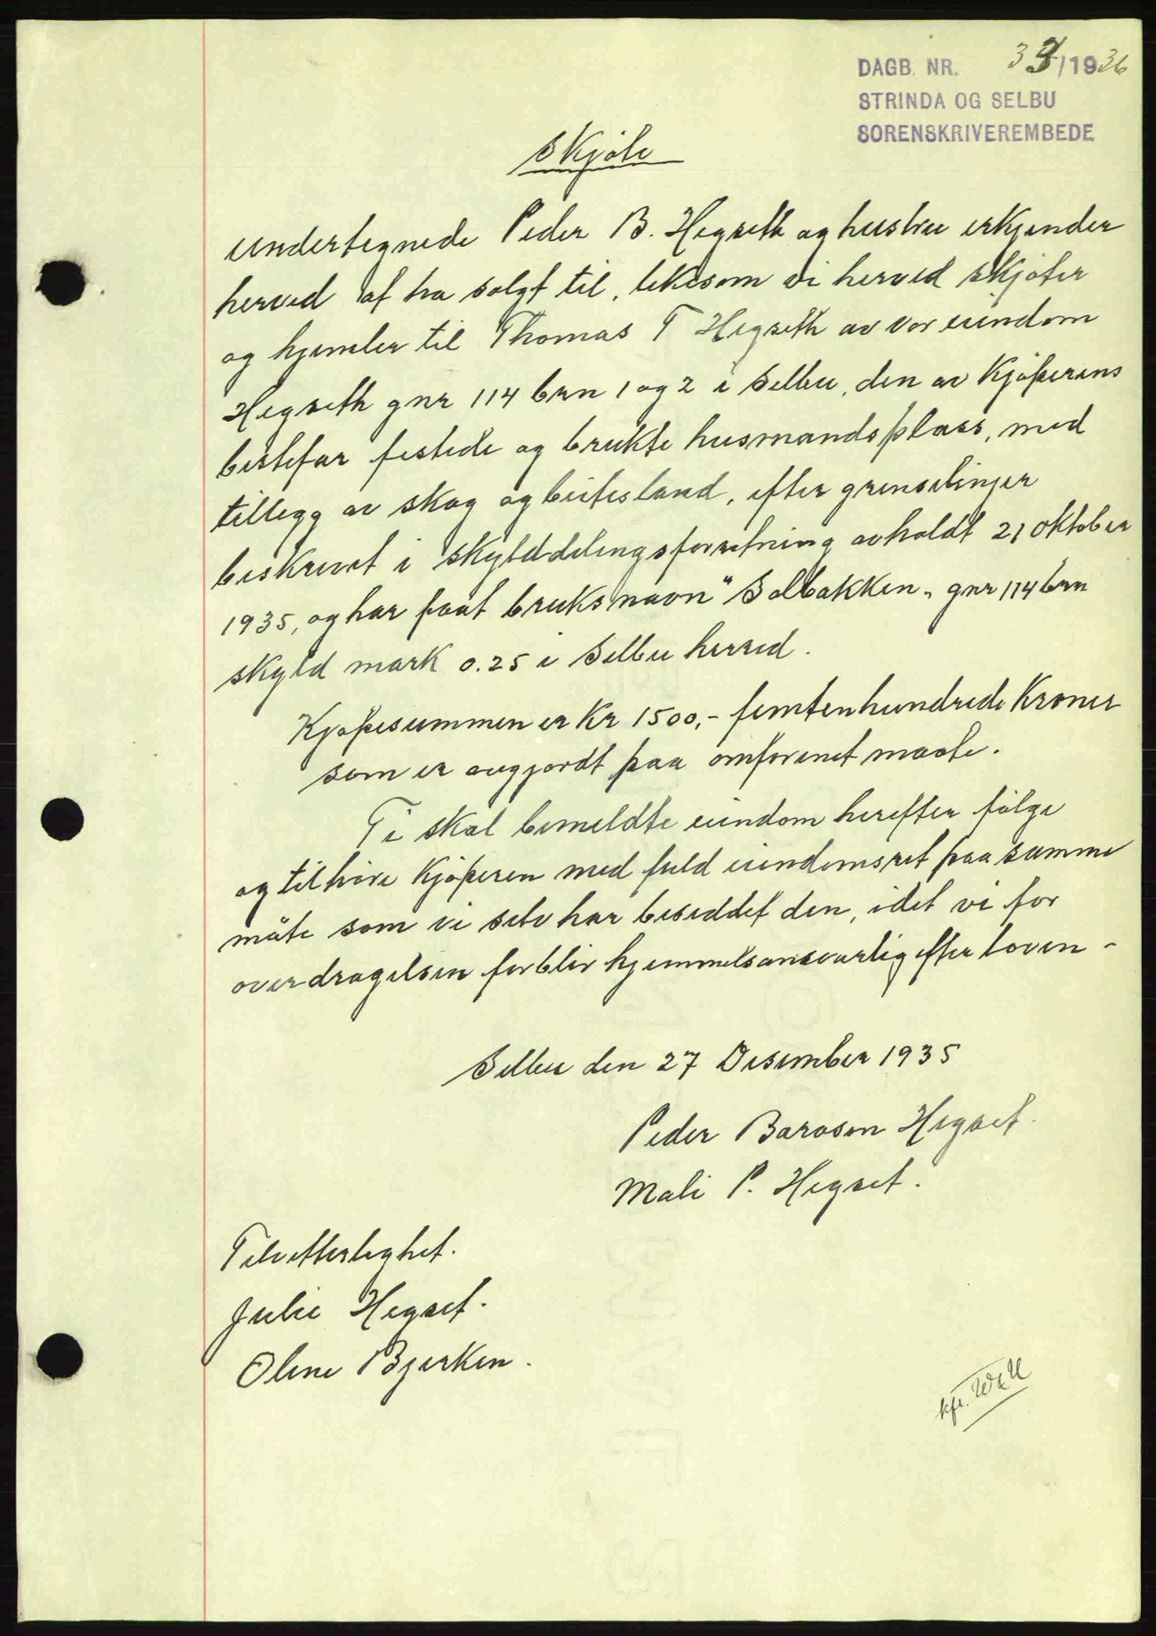 DAGB. NR. 33/1936
STRINDA OG SELBU
SORENSKRIVEREMBEDE
Skjøte
Undertegnede Peder B. Hegseth og hustru erkjender
herved af ha solgt til, likesom vi herved skjøter
og hjemler til Thomas T Hegseth av vor eiendom
Hegseth gnr 114 brn 1 og 2 i Selbu, den av Kjøperens
bestefar festede og brukte husmandsplass, med
tillegg av skog og beitesland, efter grenselinjer
beskrevet i skylddelingsforretning avholdt 21 oktober
1935, og har faat bruksnavn "Solbakken" gnr 114 brn
skyld mark 0.25 i Selbu herred.
Kjøpesummen er Kr 1500,- femtenhundrede Kroner
som er avgjordt paa omforenet maate.
Ti skal bemeldte eiendom herefter følge
og tilhøre Kjøperen med fuld eiendomsret paa samme
måte som vi selv har besiddet den, idet vi for
overdragelsen forblir hjemmelsansvarlig efter loven -
Selbu den 27 Desember 1935
Peder Barosen Hegset.
Mali P. Hegset.
Til vitterlighet.
Julie Hegset.
Oline Bjerken.
kfr.